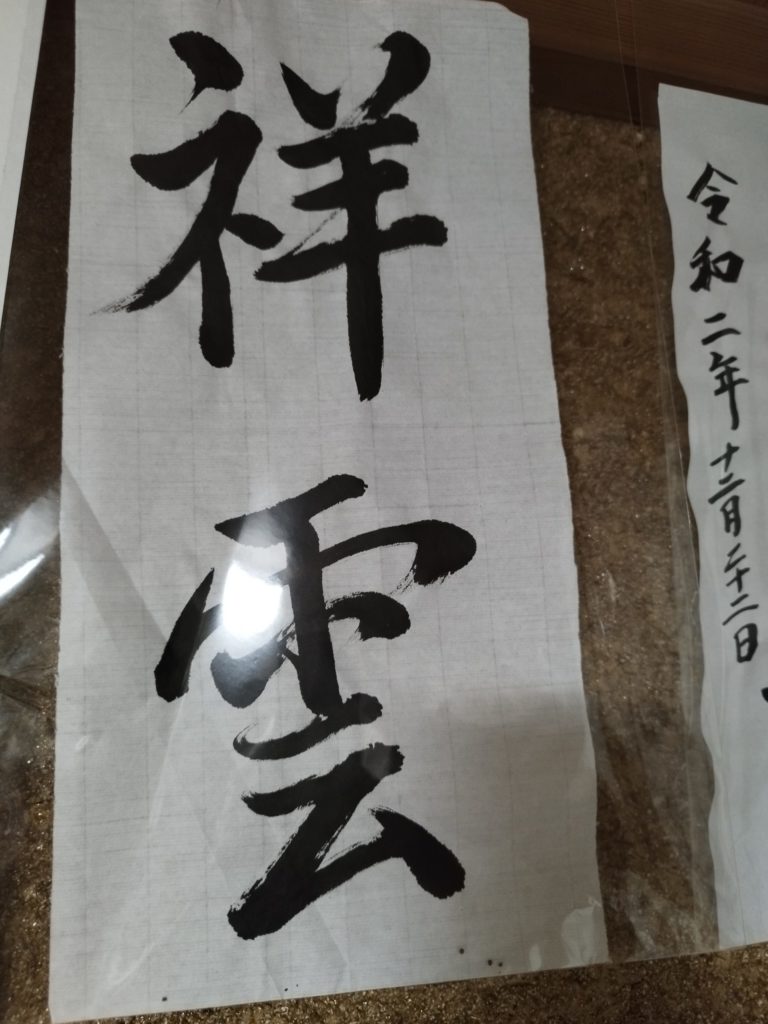 令和二年十二月二十二日
祥雲